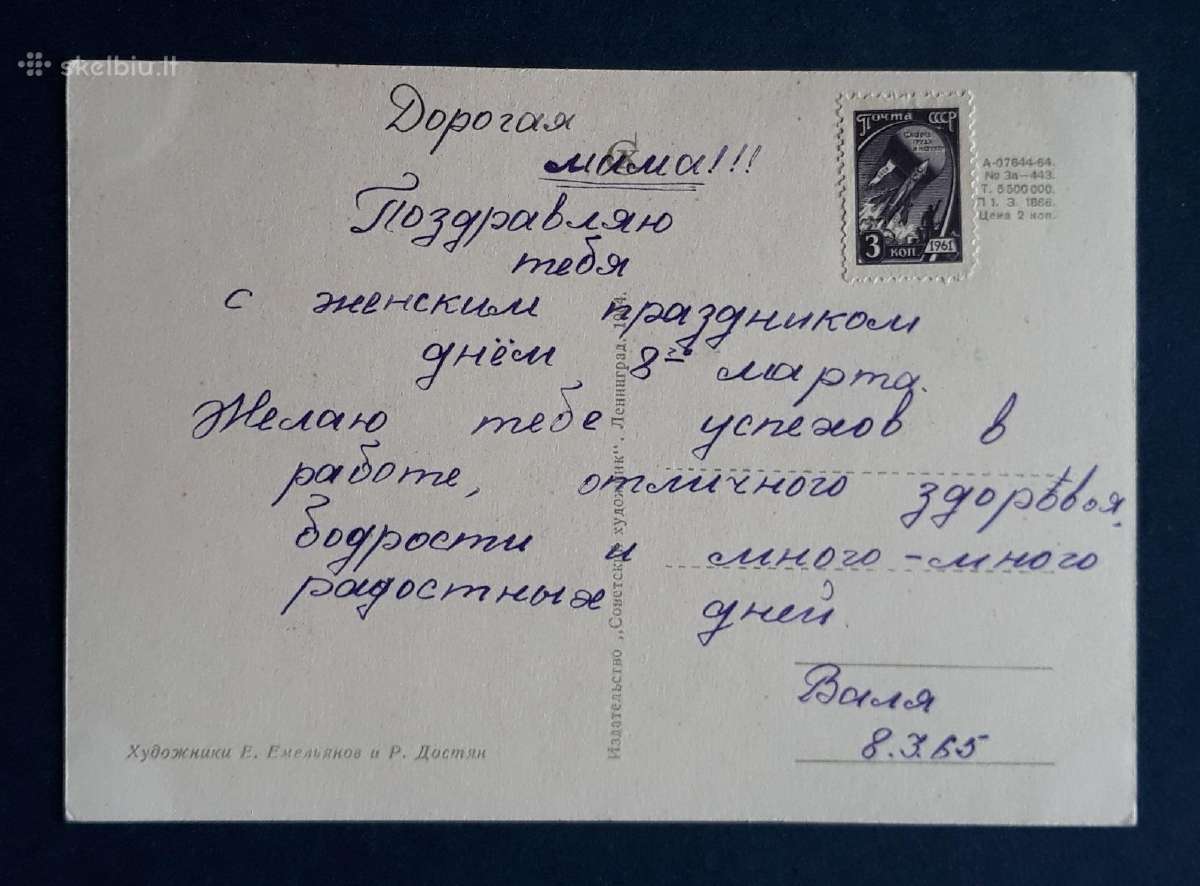 skelbiu.lt
Дорогая
мама!!!
Поздравляю
тебя
с женским праздником
днём 8го марта.
Желаю тебе успехов в
работе, отличного здоровья,
бодрости и много-много
радостных дней.
Валя
8.3.65
Почта СССР
3 коп 1961
А-07644-64.
№ За-443.
Т. 5 500 000.
П 1. З. 1866.
Цена 2 коп.
Издательство ,,Советский художник". Ленинград. 1964.
Художники Е. Емельянов и Р. Достян